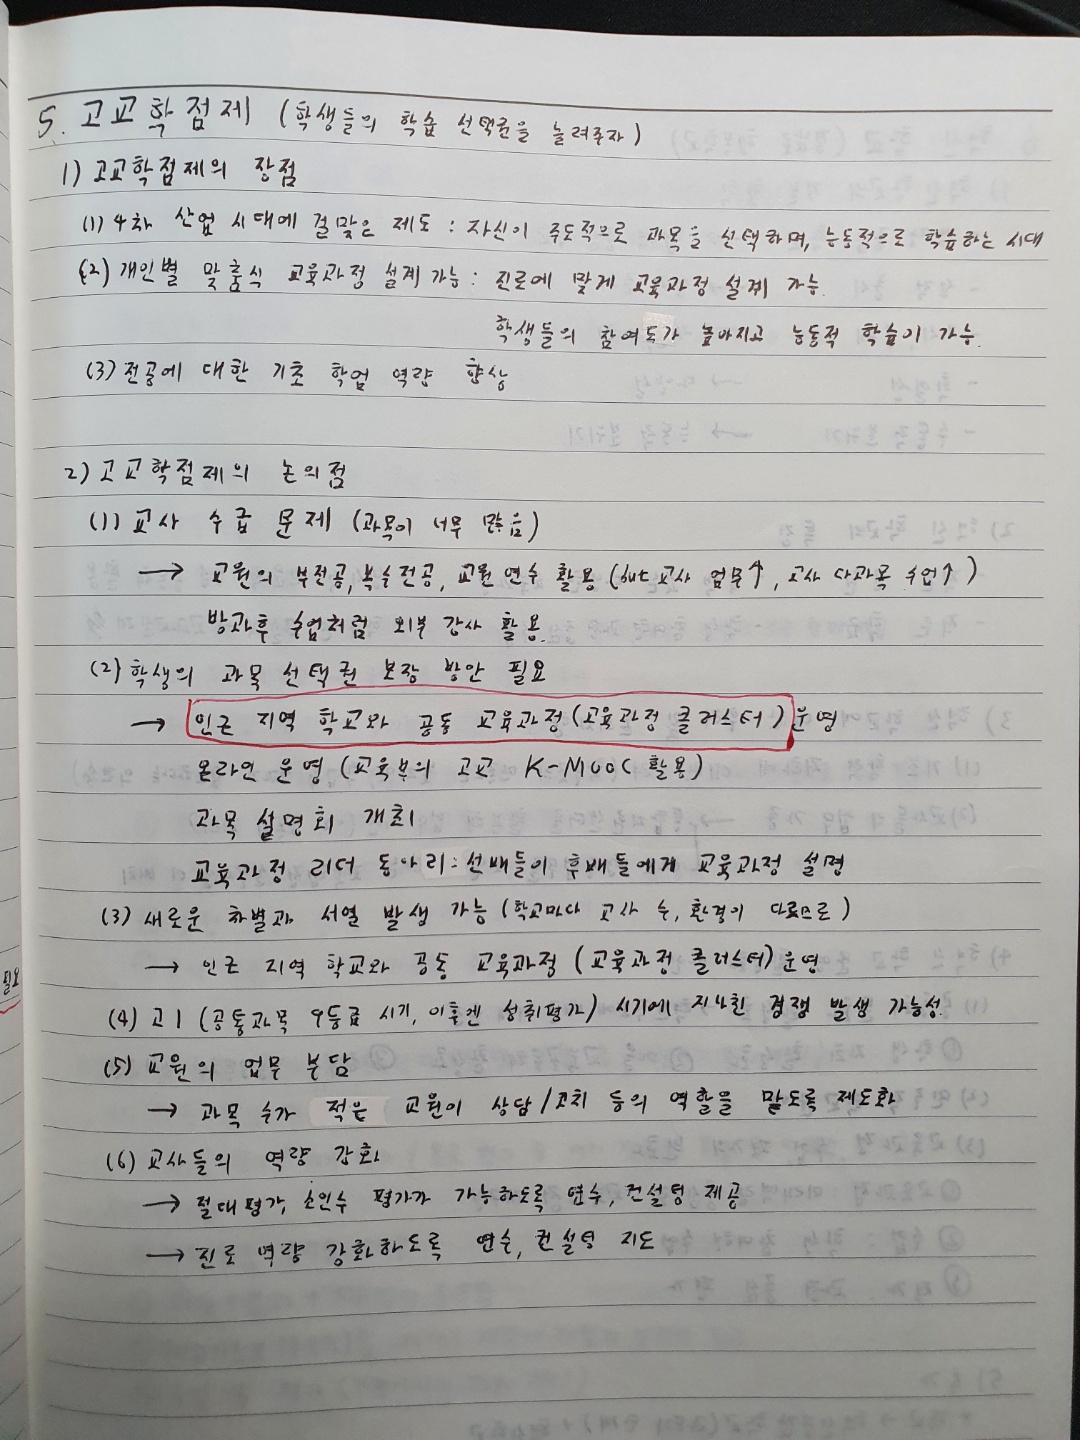 5. 고교학점제 (학생들의 학습 선택권을 늘려주자)
1) 고교학점제의 장점
(1) 4차 산업 시대에 걸맞은 제도 : 자신이 주도적으로 과목을 선택하며, 능동적으로 학습하는 시대
(2) 개인별 맞춤식 교육과정 설계 가능 : 진로에 맞게 교육과정 설계 가능.
학생들의 참여도가 높아지고 능동적 학습이 가능.
(3) 전공에 대한 기초 학업 역량 향상
2) 고교학점제의 논의점
(1) 교사 수급 문제 (과목이 너무 많음)
→ 교원의 부전공, 복수전공, 교원 연수 활용 (but 교사 업무↑, 교사 다과목 수업↑)
방과후 수업처럼 외부 강사 활용.
(2) 학생의 과목 선택권 보장 방안 필요
→ 인근 지역 학교와 공동 교육과정 (교육과정 클러스터) 운영
온라인 운영 (교육부의 고교 K-MOOC 활용)
과목 설명회 개최
교육과정 리더 동아리 : 선배들이 후배들에게 교육과정 설명
(3) 새로운 차별과 서열 발생 가능 (학교마다 교사 수, 환경이 다르므로)
→ 인근 지역 학교와 공동 교육과정 (교육과정 클러스터) 운영
필요
(4) 고1 (공통과목 9등급 시기, 이후엔 성취평가) 시기에 지나친 경쟁 발생 가능성.
(5) 교원의 업무 부담
→ 과목 수가 적은 교원이 상담/코치 등의 역할을 맡도록 제도화
(6) 교사들의 역량 강화
→ 절대평가, 소인수 평가가 가능하도록 연수, 컨설팅 제공
→ 진로 역량 강화하도록 연수, 컨설팅 지도